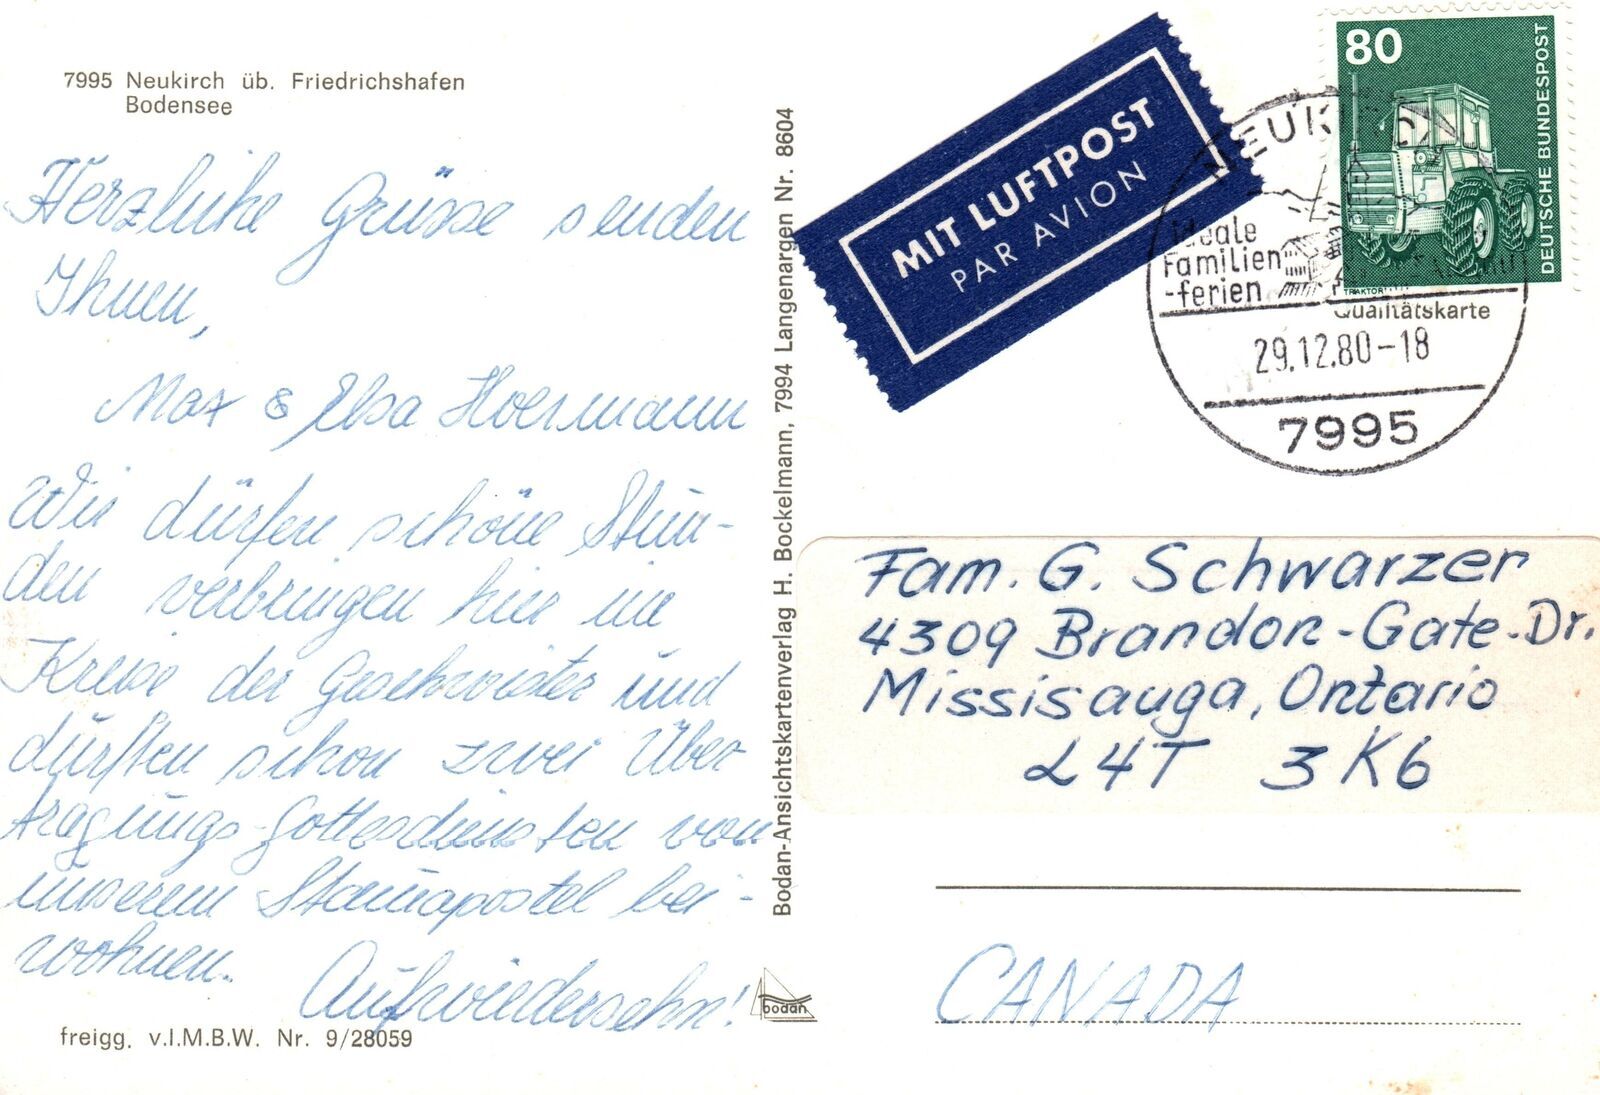 7995 Neukirch üb. Friedrichshafen
Bodensee
Herzliche Grüsse senden
Ihnen,
Max & Elsa Hoermann
Wir dürfen schöne Stun-
den verbringen hier im
Kreise der Geschwister und
dürften schon zwei Über
tragungs-Gottesdiensten von
unserem Stammapostel bei-
wohnen.
Aufwiedersehn!
freigg. v.I.M.B.W. Nr. 9/28059
Bodan-Ansichtskartenverlag H. Bockelmann, 7994 Langenargen Nr. 8604
bodan
MIT LUFTPOST
PAR AVION
80
DEUTSCHE BUNDESPOST
TRAKTOR
Ideale
Familien
-ferien
Qualitätskarte
29.12.80-18
7995
Fam. G. Schwarzer
4309 Brandon-Gate-Dr.
Missisauga, Ontario
L4T 3K6
CANADA